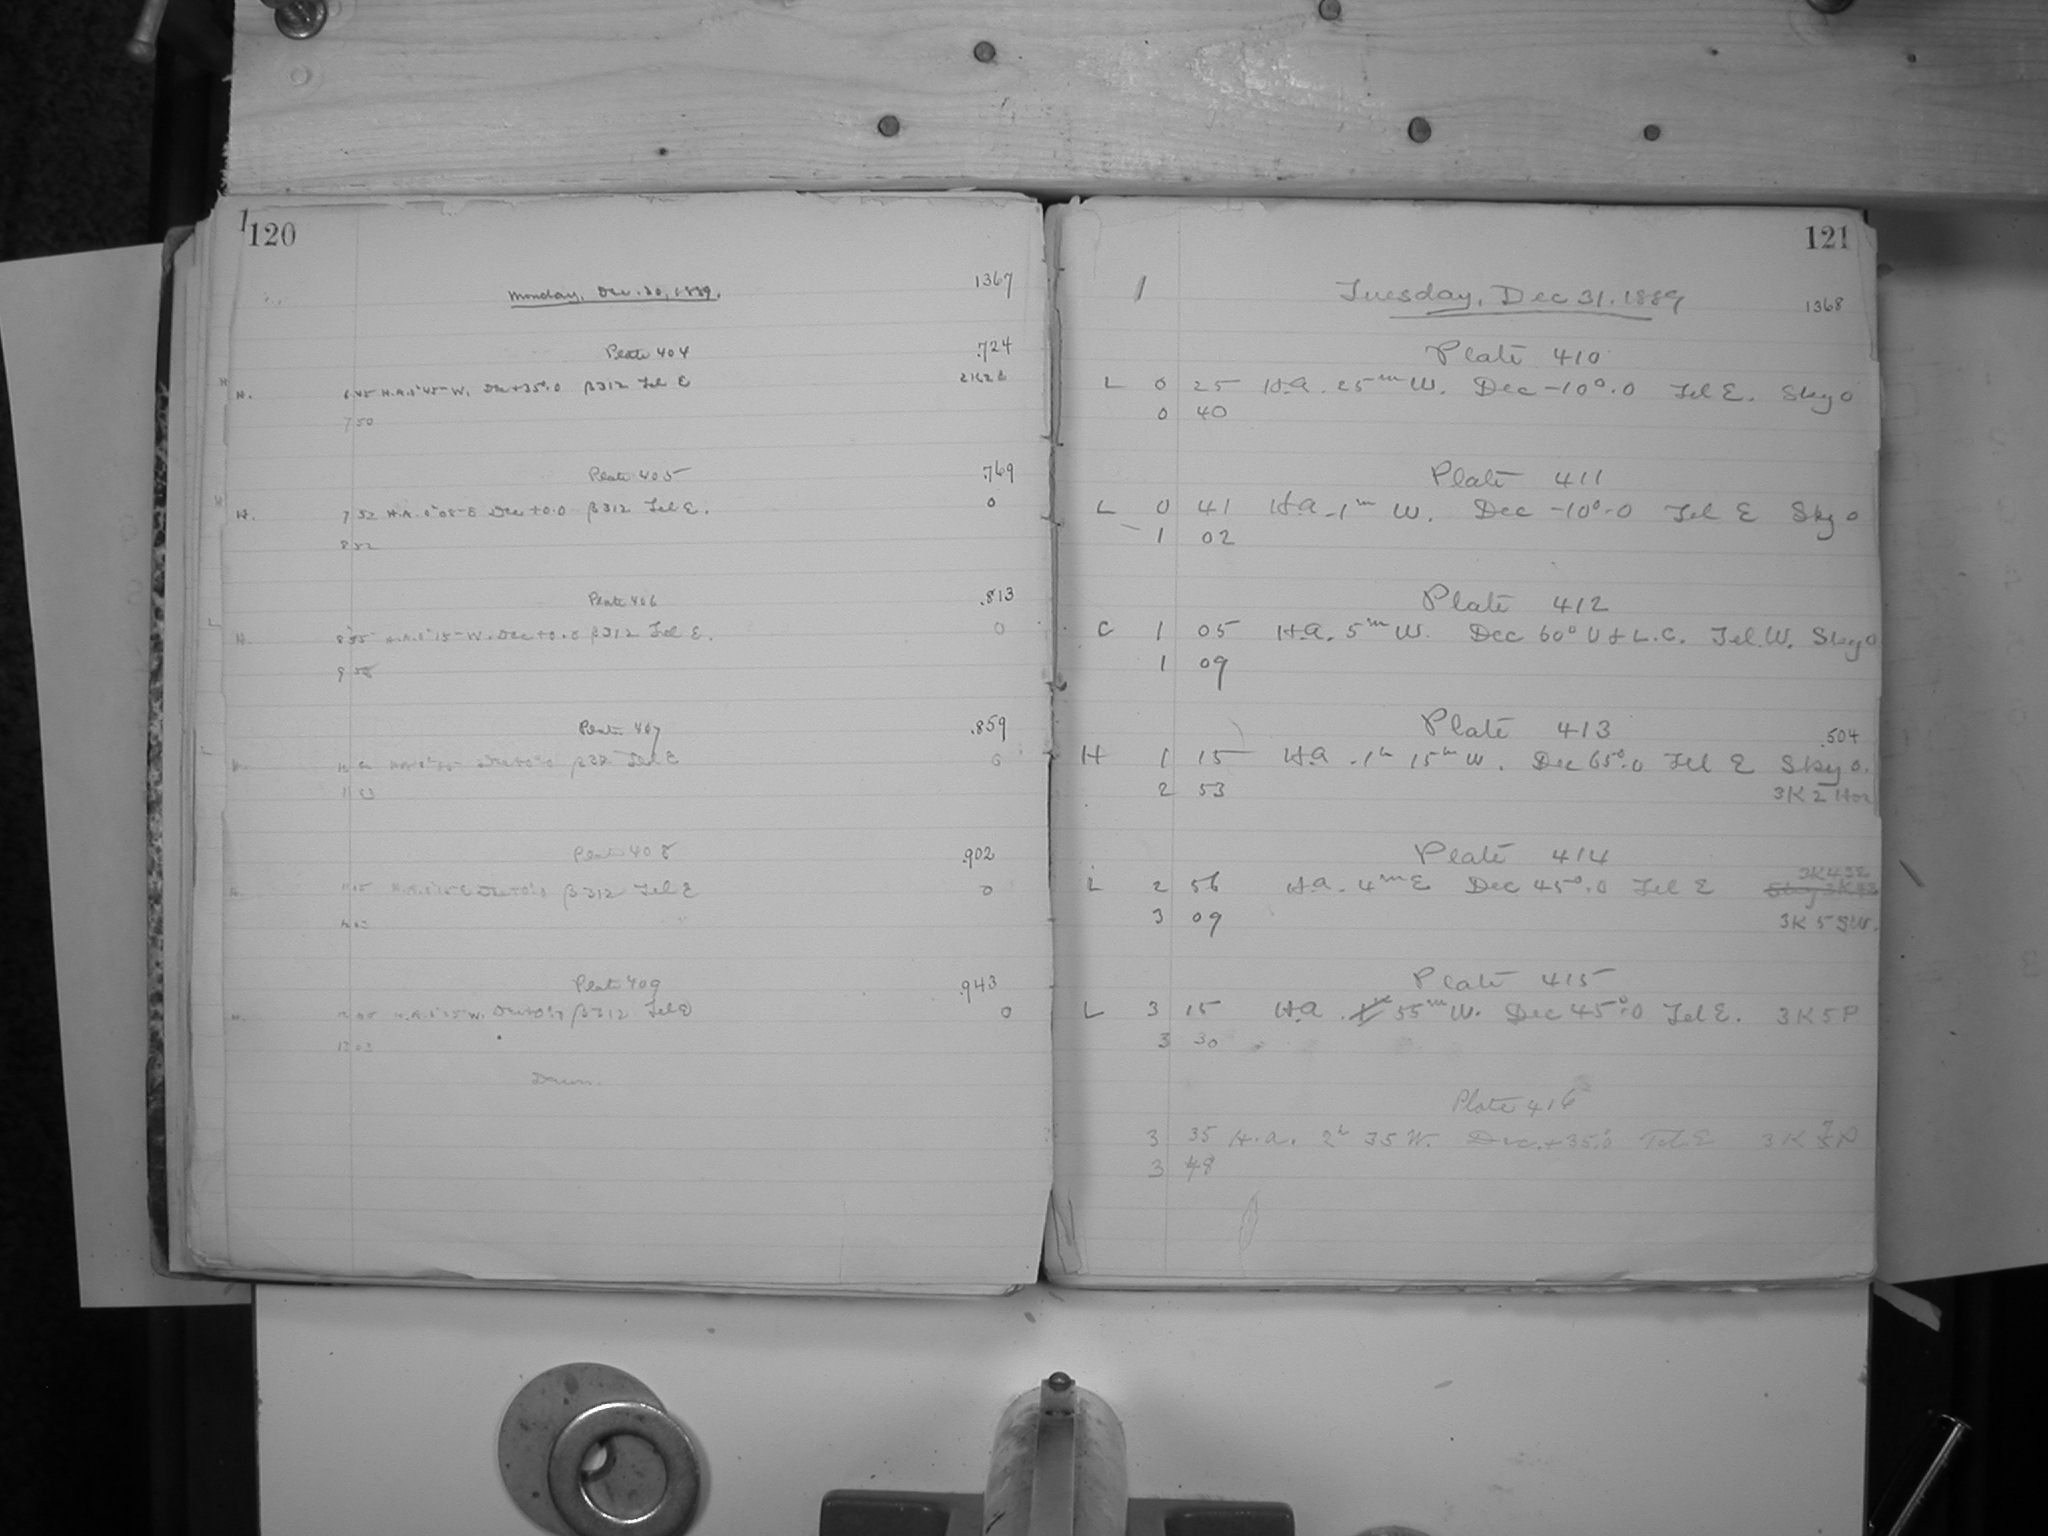 120
1367
Monday, Dec. 30, 1889.
Plate 404 .724
H. 6 45 H.A. 1h 45m W. Dec +35°.0 β312 Tel E
7 50
Plate 405 .769
H. 7 52 H.A. 0h 08m E Dec +0.0 β312 Tel E. 0
8 52
Plate 406 .813
H. 8 55 H.A. 1h 15m W. Dec +0.0 β312 Tel E. 0
9 58
Plate 407 .859
Tel E 0
Plate 408 .902
β312 Tel E 0
Plate 409 .943
β312 Tel E 0
13 03
Dawn.
121
1 Tuesday, Dec 31. 1889 1368
Plate 410
L 0 25 H.a. 25m W. Dec -10°.0 Tel E. Sky 0
0 40
Plate 411
L 0 41 H.a. 1m W. Dec -10°.0 Tel E Sky 0
1 02
Plate 412
C 1 05 H.a. 5m W. Dec 60° U & L.C. Tel. W. Sky 0
1 09
Plate 413 .504
H 1 15 H.a. 1h 15m W. Dec 65°.0 Tel E Sky 0.
2 53 3K 2 Hor
Plate 414
L 2 56 H.a. 4m E Dec 45°.0 Tel E
3 09 3K 5 SW.
Plate 415
L 3 15 H.a. 55m W. Dec 45°.0 Tel E. 3K5P
3 30
Plate 416
3 35 H.a. 2h 35 W. Dec. +35°.0 Tel. E 3K
3 48